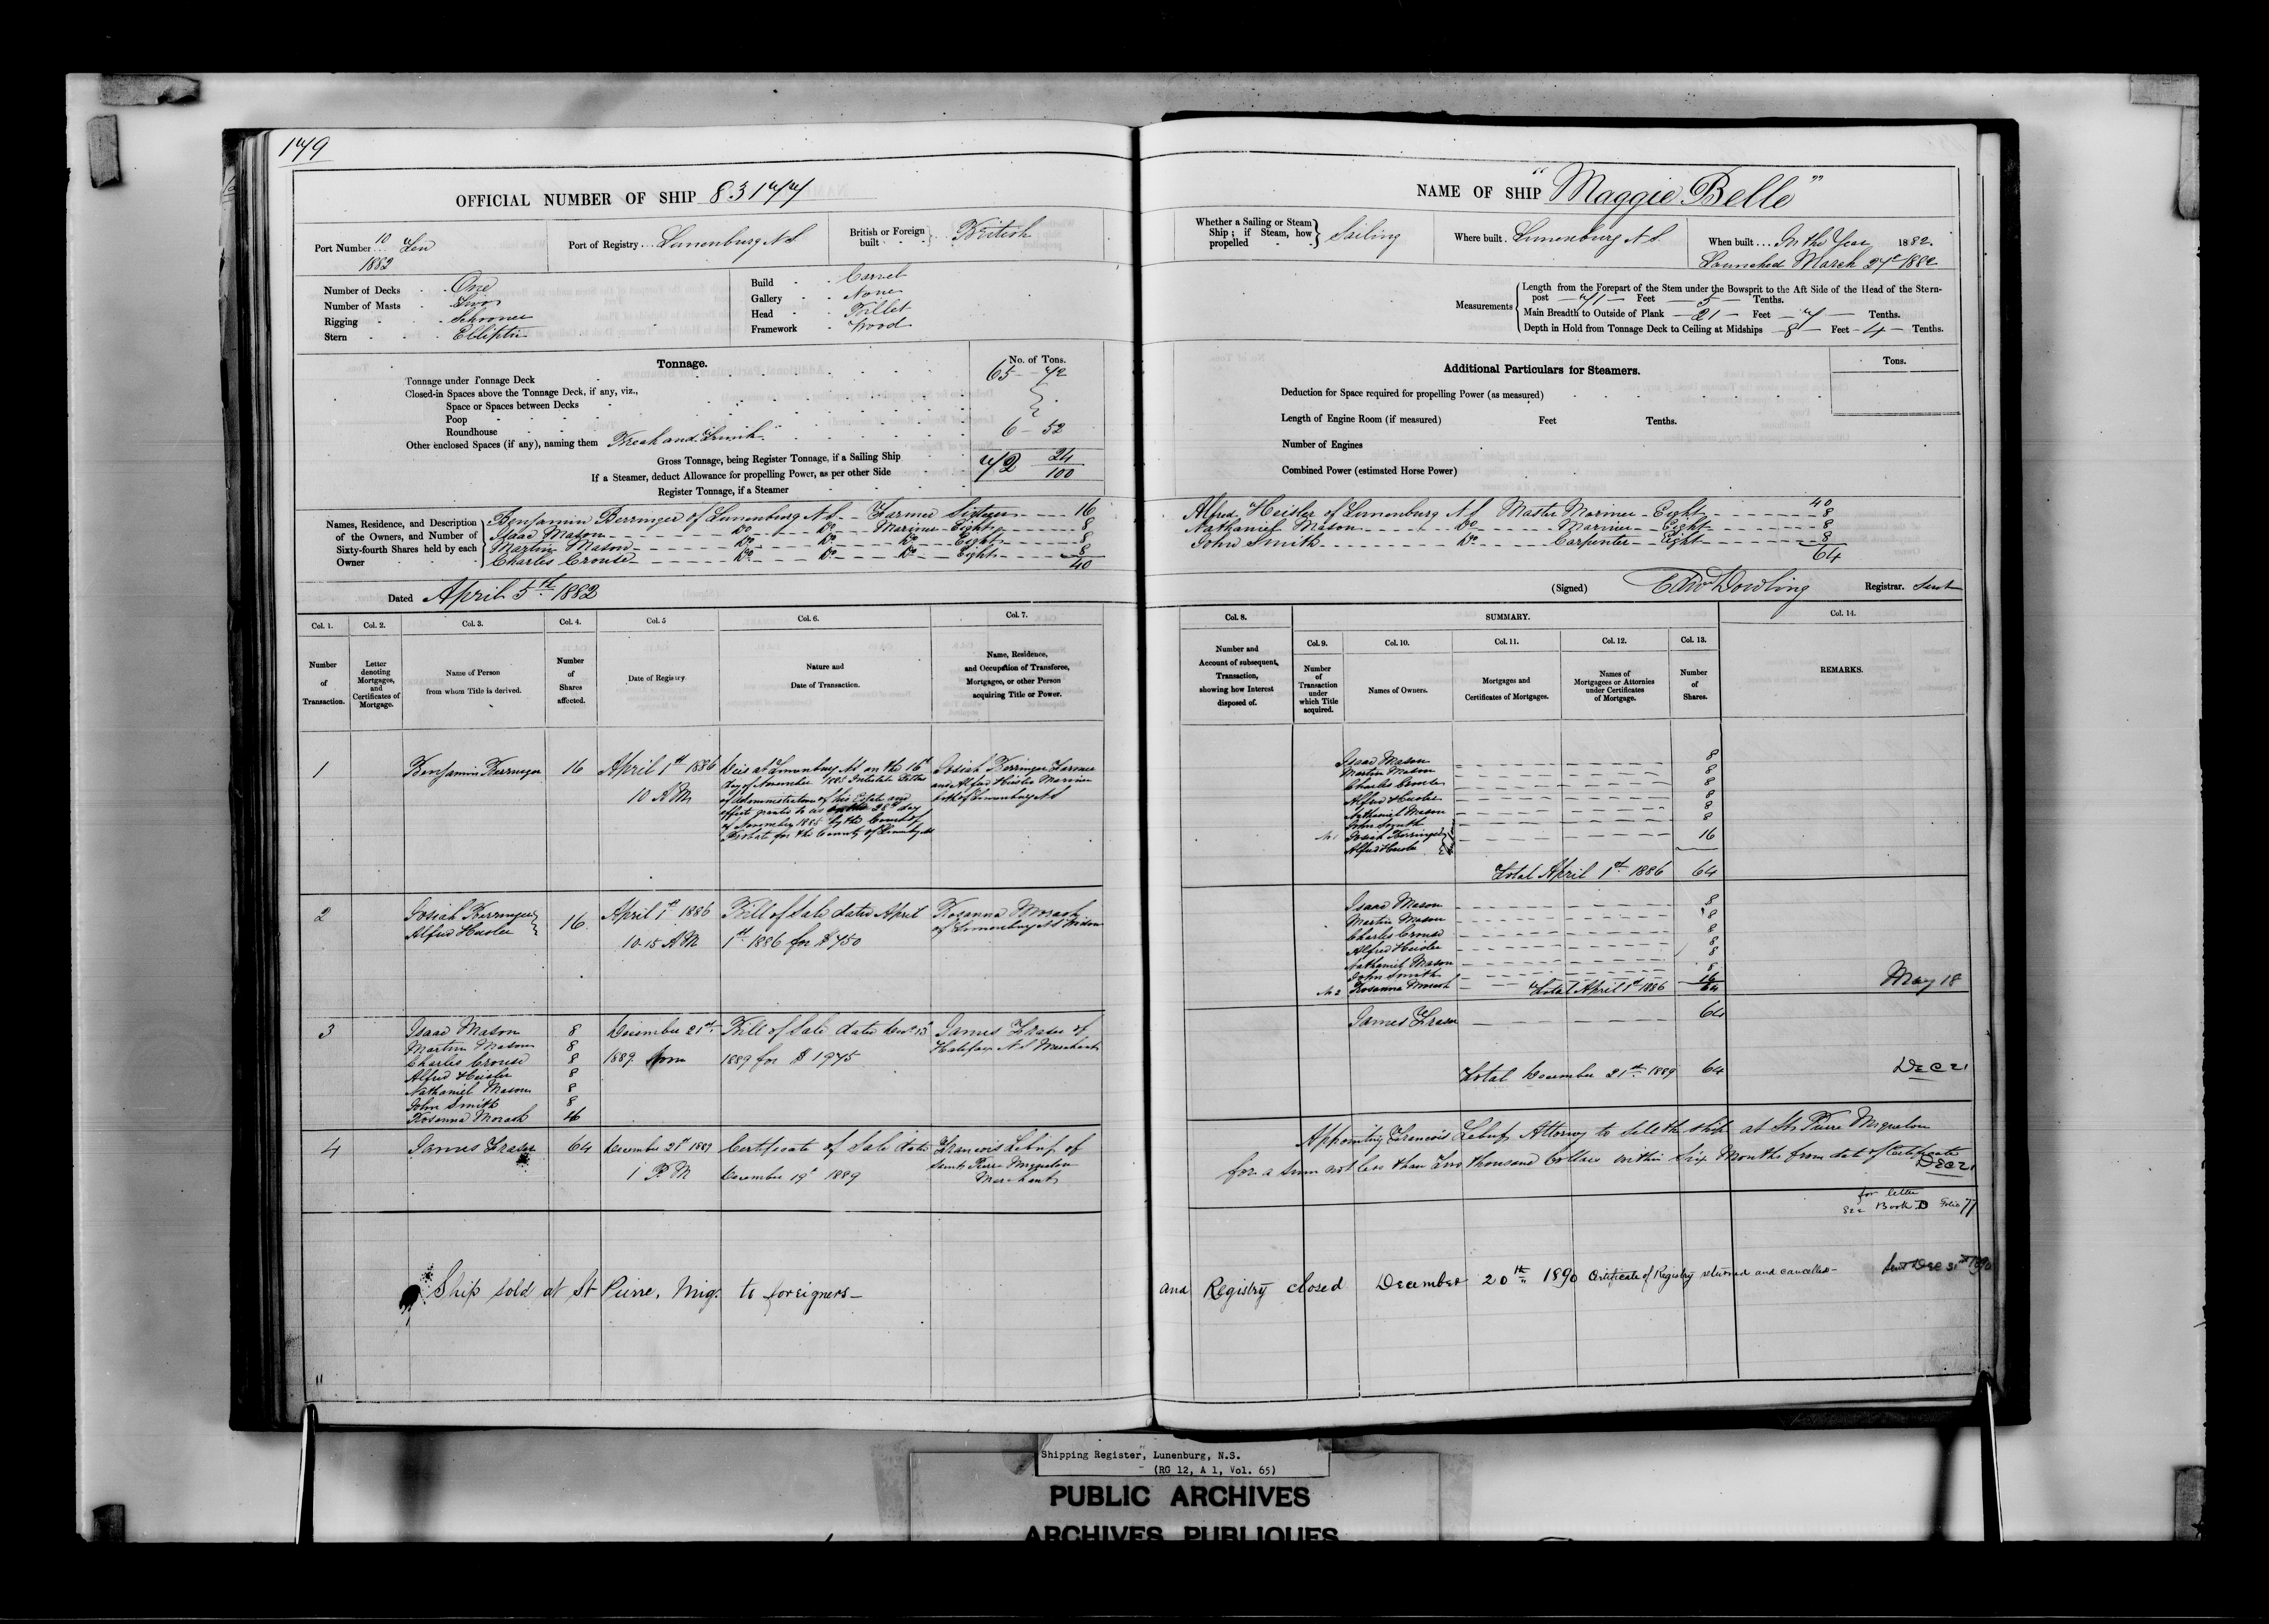 179
OFFICIAL NUMBER OF SHIP 83177
Port Number 10 Ten 1882
Port of Registry Lunenburg N S
British or Foreign built British
Number of Decks One
Number of Masts Two
Rigging Schooner
Stern Elliptic
Build Carvel
Gallery None
Head Billet
Framework Wood
Tonnage.
No. of Tons.
Tonnage under Tonnage Deck 65 - 72
Closed-in Spaces above the Tonnage Deck, if any, viz.,
Space or Spaces between Decks
Poop
Roundhouse
Other enclosed Spaces (if any), naming them Break and Trunk 6 - 52
Gross Tonnage, being Register Tonnage, if a Sailing Ship 72 24/100
If a Steamer, deduct Allowance for propelling Power, as per other Side
Register Tonnage, if a Steamer
Names, Residence, and Description of the Owners, and Number of Sixty-fourth Shares held by each Owner
Benjamin Berringer of Lunenburg N S - Farmer Sixteen 16
Isaac Mason Do Do Mariner Eight 8
Martin Mason Do Do Do Eight 8
Charles Crouse Do Do Do Eight 8
40
Dated April 5th 1882
Col. 1. Col. 2. Col. 3. Col. 4. Col. 5 Col. 6. Col. 7.
Number of Transaction.
Letter denoting Mortgages, and Certificates of Mortgage.
Name of Person from whom Title is derived.
Number of Shares affected.
Date of Registry.
Nature and Date of Transaction.
Name, Residence, and Occupation of Transferee, Mortgagee, or other Person acquiring Title or Power.
1 Benjamin Berringer 16 April 1st 1886 10 A M
Died at Lunenburg N S on the 16th
day of November 1885 Intestate Letters
of Administration of his Estate and
effects granted to us 28th day
of November 1885 by the Court of
Probate for the County of Lunenburg
Josiah Berringer Farmer
and Alfred Heisler Mariner
both of Lunenburg N S
2 Josiah Berringer
Alfred Heisler 16 April 1st 1886
10.15 A M
Bill of Sale dated April
1st 1886 for $ 750
Rosanna Morash
of Lunenburg N S Widow
3 Isaac Mason 8
Martin Mason 8
Charles Crouse 8
Alfred Heisler 8
Nathaniel Mason 8
John Smith 8
Rosanna Morash 16
December 21st 1889
Bill of Sale dated
1889 for $ 1975
James Fraser of
Halifax N S Merchant
4 James Fraser 64 December 21st 1889
1 P M
Certificate of Sale dated
December 19th 1889
Francois of
Saint Pierre Miquelon
Merchant
Ship sold at St Pierre, Miq. to foreigners -
NAME OF SHIP "Maggie Belle"
Whether a Sailing or Steam Ship ; if Steam, how propelled Sailing
Where built Lunenburg N S.
When built In the Year 1882.
Launched March 27th 1882
Measurements
Length from the Forepart of the Stem under the Bowsprit to the Aft Side of the Head of the Stern-
post 71 Feet 5 Tenths.
Main Breadth to Outside of Plank 21 Feet 7 Tenths.
Depth in Hold from Tonnage Deck to Ceiling at Midships 8 Feet 4 Tenths.
Additional Particulars for Steamers.
Tons.
Deduction for Space required for propelling Power (as measured)
Length of Engine Room (if measured) Feet Tenths.
Number of Engines
Combined Power (estimated Horse Power)
40
Alfred Heisler of Lunenburg N S Master Mariner - Eight 8
Nathaniel Mason Do Mariner - Eight 8
John Smith Do Carpenter - Eight 8
64
(Signed) Edw Dowling Registrar. Sent
Col. 8. SUMMARY. Col. 14.
Col. 9. Col. 10. Col. 11. Col. 12. Col. 13.
Number and Account of subsequent, Transaction, showing how Interest disposed of.
Number of Transaction under which Title acquired.
Names of Owners.
Mortgages and Certificates of Mortgages.
Names of Mortgagees or Attornies under Certificates of Mortgage.
Number of Shares.
REMARKS.
Isaac Mason 8
Martin Mason 8
Charles Crouse 8
Alfred Heisler 8
Nathaniel Mason 8
John Smith 8
No 1 Josiah Berringer
Alfred Heisler 16
Total April 1st 1886 64
Isaac Mason 8
Martin Mason 8
Charles Crouse 8
Alfred Heisler 8
Nathaniel Mason 8
John Smith 8
No 2 Rosanna Morash 16
Total April 1st 1886 64
May 18
James Fraser 64
Total December 21st 1889 64
Dec 21
Appointing Francois Attorney to sell the ship at St Pierre Miquelon
for a sum not less than Two thousand Dollars within Six Months from date of Certificate
Dec 21
for letter
See Book D Folio 77
and Registry closed December 20th 1890 Certificate of Registry returned and cancelled - Sent Dec 31st 1890
Shipping Register", Lunenburg, N.S.
(RG 12, A 1, Vol. 65)
PUBLIC ARCHIVES
ARCHIVES PUBLIQUES